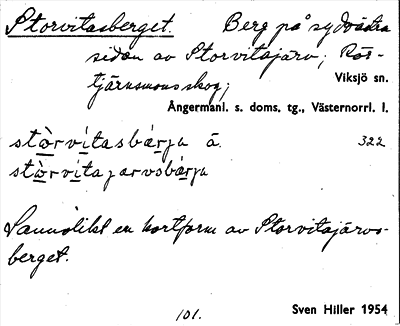 Storvitasberget. Berg på sydvästra
sidan av Storvitajärv; Rös-
tjärnsmons skog; Viksjö sn.
Ångermanl. s. doms. tg., Västernorrl. l.
stòrvítasbærja ä. 322
stòrvitajarvsbærja
Sannolikt en kortform av Storvitajärvs-
berget.
101. Sven Hiller 1954